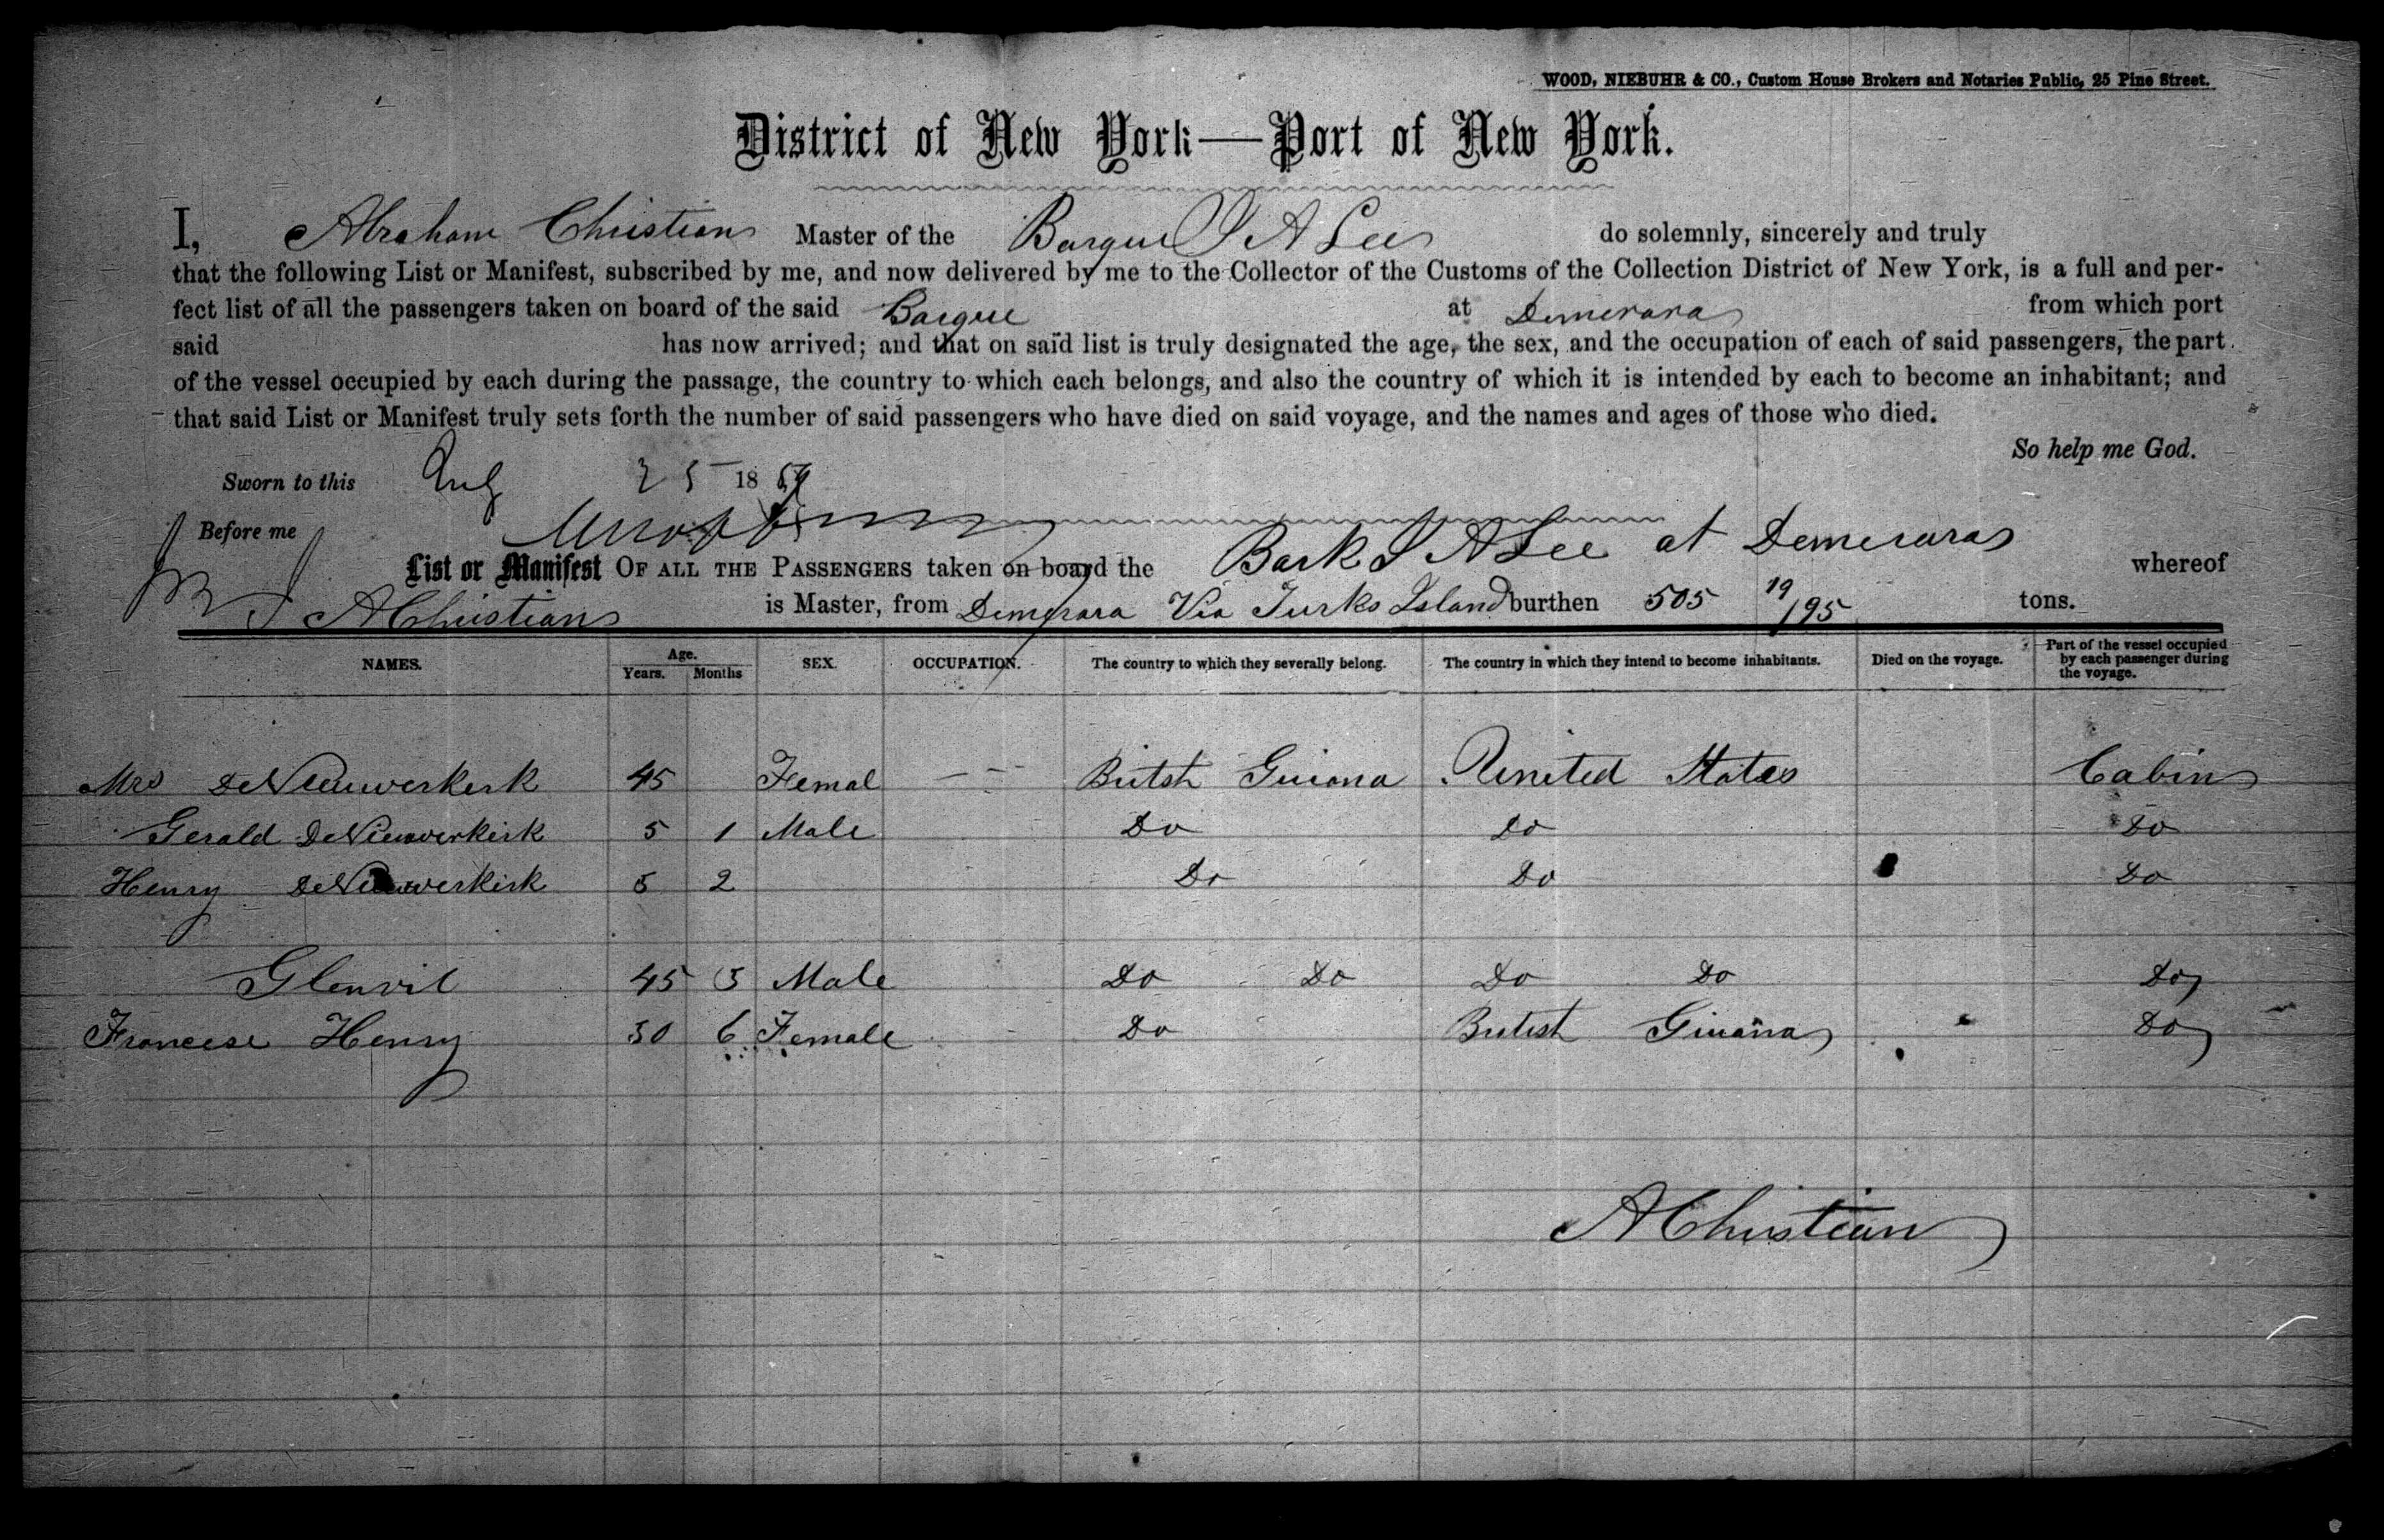 WOOD, NIEBUHR & CO., Custom House Brokers and Notaries Public, 25 Pine Street.
District of New York—Port of New York.
I, Abraham Christian Master of the Barque A Lee do solemnly, sincerely and truly
that the following List or Manifest, subscribed by me, and now delivered by me to the Collector of the Customs of the Collection District of New York, is a full and per-
fect list of all the passengers taken on board of the said Barque at Demerara from which port
said has now arrived; and that on said list is truly designated the age, the sex, and the occupation of each of said passengers, the part
of the vessel occupied by each during the passage, the country to which each belongs, and also the country of which it is intended by each to become an inhabitant; and
that said List or Manifest truly sets forth the number of said passengers who have died on said voyage, and the names and ages of those who died.
So help me God.
Sworn to this Aug 25 18
Before me
List or Manifest OF ALL THE PASSENGERS taken on board the Bark A Lee at Demerara whereof
A Christian is Master, from Demerara Via Turks Island burthen 505 19/95 tons.
NAMES. Age. Years. Months SEX. OCCUPATION. The country to which they severally belong. The country in which they intend to become inhabitants. Died on the voyage. Part of the vessel occupied by each passenger during the voyage.
Mrs DeNieuwerkerk 45 Femal — — British Guiana United States Cabin
Gerald DeNieuwerkirk 5 1 Male Do Do Do
Henry DeNieuwerkirk 5 2 Do Do Do
Glenvil 45 5 Male Do Do Do Do Do
Francese Henry 30 6 Female Do British Guiana Do
A Christian